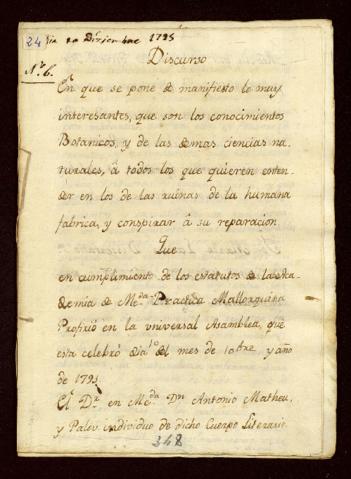 24 Dia 10 Diziembre 1795
Nº 6.
Discurso
En que se pone de manifiesto lo muy
interesantes, que son los conocimientos
Botanicos, y de las demas ciencias na-
turales, â todos los que quieren enten-
der en los de las ruinas de la humana
fabrica, y conspirar â su reparacion
Que
en cumplimiento de los estatutos de la Aca-
demia de Medª Practica Mallorquina
Profirió en la universal Asamblea, que
esta celebró dia 10 del mes de 10bre, y año
de 1795
El Dr. en Medª Dn Antonio Matheu,
y Palou individuo de dicho Cuerpo Literario.
348